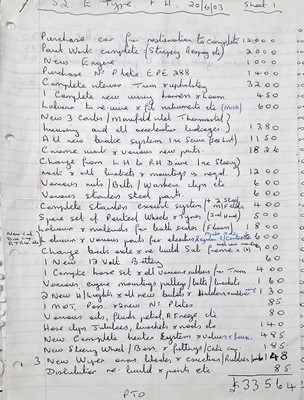 S2 E Type. F.H. 20/6/03 Sheet 1
Purchase car for restoration to complete 12000
Paint Work complete (Stripey Respray etc) 2000
New Engine 1000
Purchase No Plate. EPE 288 1400
Complete interior Trim & upholstery 3200
Complete new wiring harness & Loom 450
Labour to rewire & fit instruments etc (much) 600
New 3 Carbs / Manifold inlet Thermostat)
and all accelerator linkages) 1380
All new brake system Inc Servo 1150
Chrome work & various new parts 1826
Change from LH to RH Drive Inc Steering)
rack & all brackets & mountings as reqd 1200
Various nuts / Bolts / Washers clips etc 600
Various stainless steel parts 600
Complete Stainless exhaust system 400
Spare set of Painted Wheels & Tyres (2nd Hand) 500
Labour & materials for both sills (Floors) 1800
Labour & various new parts for 600
Change back axle & re build Sub frame 400
1 New 12 Volt Battery 60
1 Complete hose set & all various rubbers for Trim 400
Various engine mountings pulley / belts / brackets 160
2 New H/Lights & all new bulbs & Holders 130
1 MOT. Pass. & 2 new N. Plates 85
Various oils, fluids, petrol, A Freeze etc 80
Hose clips Jubilees, brackets & rads etc 140
New Complete heater System & valves & hoses. 485
New Steering Wheel / Boss & fittings 185
3 New Wiper arms blades & 148
Distributor re build & parts etc 85
£33564
PTO